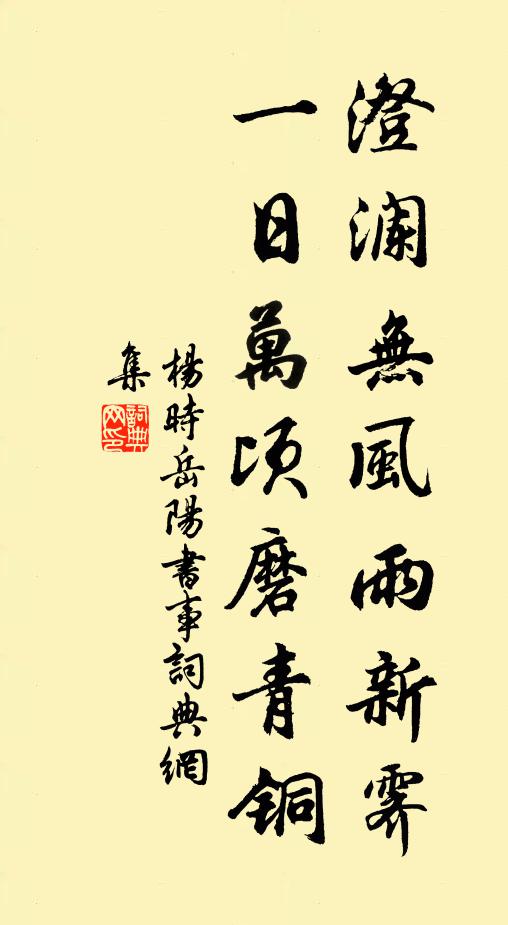 澄澜無風雨新霽
一日萬顷磨青铜
楊時岳陽書事詞典網
集
詞典
网印